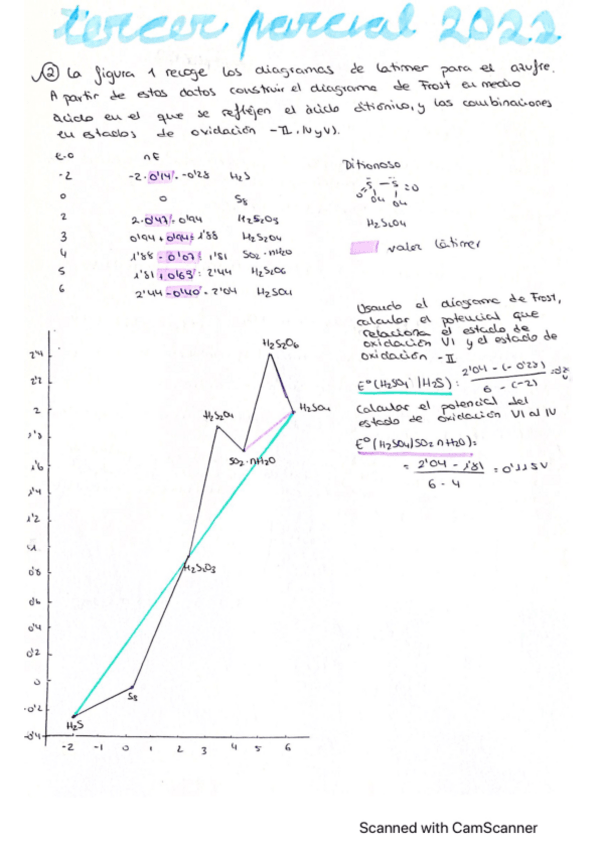 tercer parcial 2022
② La figura 1 recoge los diagramas de Latimer para el azufre.
A partir de estos datos construir el diagrama de Frost en medio
ácido en el que se reflejen el ácido ditiónico, y las combinaciones
en estados de oxidación -II, IV y V).
e.o nE
-2 -2·0'14 = -0'28 H2S
0 0 S8
2 2·0'47 = 0'94 H2S2O3
3 0'94 + 0'94 = 1'88 H2S2O4
4 1'88 - 0'07 = 1'81 SO2·nH2O
5 1'81 + 0'63 = 2'44 H2S2O6
6 2'44 - 0'40 = 2'04 H2SO4
Ditionoso
S - S
O OH OH =O
H2S2O4
valor látimer
Usando el diagrama de Frost,
calcular el potencial que
relaciona el estado de
oxidación VI y el estado de
oxidación -II
E°(H2SO4 | H2S) = 2'04 - (-0'28)
6 - (-2)
Calcular el potencial del
estado de oxidación VI al IV
E°(H2SO4/SO2 nH2O) =
= 2'04 - 1'81 = 0'115 V
6 - 4
H2S2O6
2'4
2'2
2
H2SO4
H2S2O4
1'8
SO2·nH2O
1'6
1'4
1'2
1
H2S2O3
0'8
0'6
0'4
0'2
0
S8
-0'2
H2S
-0'4
-2 -1 0 1 2 3 4 5 6
Scanned with CamScanner